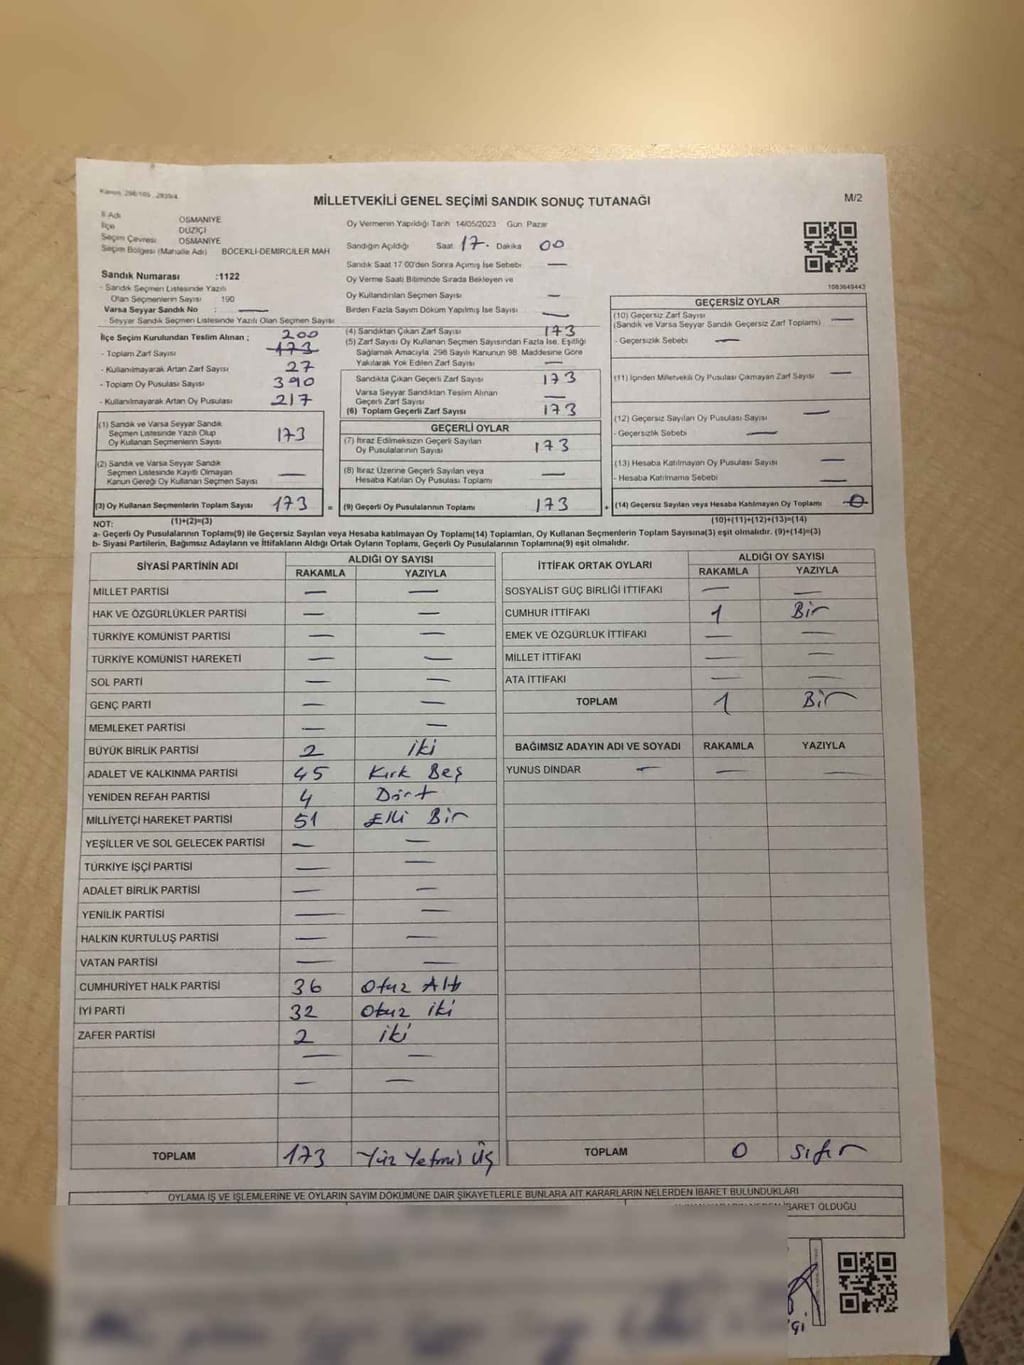 Kanun: 298/105 , 2839/4
MİLLETVEKİLİ GENEL SEÇİMİ SANDIK SONUÇ TUTANAĞI
M/2
İl Adı OSMANİYE
İlçe DÜZİÇİ
Seçim Çevresi OSMANİYE
Seçim Bölgesi (Mahalle Adı) BÖCEKLİ-DEMİRCİLER MAH
Sandık Numarası :1122
- Sandık Seçmen Listesinde Yazılı
Olan Seçmenlerin Sayısı 190
Varsa Seyyar Sandık No : —
- Seyyar Sandık Seçmen Listesinde Yazılı Olan Seçmen Sayısı
İlçe Seçim Kurulundan Teslim Alınan ; 200
- Toplam Zarf Sayısı 173
- Kullanılmayarak Artan Zarf Sayısı 27
- Toplam Oy Pusulası Sayısı 390
- Kullanılmayarak Artan Oy Pusulası 217
(1) Sandık ve Varsa Seyyar Sandık
Seçmen Listesinde Yazılı Olup
Oy Kullanan Seçmenlerin Sayısı 173
(2) Sandık ve Varsa Seyyar Sandık
Seçmen Listesinde Kayıtlı Olmayan
Kanun Gereği Oy Kullanan Seçmen Sayısı —
(3) Oy Kullanan Seçmenlerin Toplam Sayısı 173 =
(1)+(2)=(3)
Oy Vermenin Yapıldığı Tarih 14/05/2023 Gün Pazar
Sandığın Açıldığı Saat 17. Dakika 00
Sandık Saat 17:00'den Sonra Açımış İse Sebebi —
Oy Verme Saati Bitiminde Sırada Bekleyen ve
Oy Kullandırılan Seçmen Sayısı —
Birden Fazla Sayım Döküm Yapılmış İse Sayısı —
(4) Sandıktan Çıkan Zarf Sayısı 173
(5) Zarf Sayısı Oy Kullanan Seçmen Sayısından Fazla İse, Eşitliği
Sağlamak Amacıyla, 298 Sayılı Kanunun 98. Maddesine Göre
Yakılarak Yok Edilen Zarf Sayısı —
Sandıkta Çıkan Geçerli Zarf Sayısı 173
Varsa Seyyar Sandıktan Teslim Alınan
Geçerli Zarf Sayısı —
(6) Toplam Geçerli Zarf Sayısı 173
GEÇERLİ OYLAR
(7) İtiraz Edilmeksizin Geçerli Sayılan
Oy Pusulalarının Sayısı 173
(8) İtiraz Üzerine Geçerli Sayılan veya
Hesaba Katılan Oy Pusulası Toplamı —
(9) Geçerli Oy Pusulalarının Toplamı 173 +
1083649443
GEÇERSİZ OYLAR
(10) Geçersiz Zarf Sayısı
(Sandık ve Varsa Seyyar Sandık Geçersiz Zarf Toplamı) —
- Geçersizlik Sebebi —
(11) İçinden Milletvekili Oy Pusulası Çıkmayan Zarf Sayısı —
(12) Geçersiz Sayılan Oy Pusulası Sayısı —
- Geçersizlik Sebebi —
(13) Hesaba Katılmayan Oy Pusulası Sayısı —
- Hesaba Katılmama Sebebi —
(14) Geçersiz Sayılan veya Hesaba Katılmayan Oy Toplamı 0
(10)+(11)+(12)+(13)=(14)
NOT:
a- Geçerli Oy Pusulalarının Toplamı(9) ile Geçersiz Sayılan veya Hesaba katılmayan Oy Toplamı(14) Toplamları, Oy Kullanan Seçmenlerin Toplam Sayısına(3) eşit olmalıdır. (9)+(14)=(3)
b- Siyasi Partilerin, Bağımsız Adayların ve İttifakların Aldığı Ortak Oyların Toplamı, Geçerli Oy Pusulalarının Toplamına(9) eşit olmalıdır.
SİYASİ PARTİNİN ADI ALDIĞI OY SAYISI
RAKAMLA YAZIYLA
MİLLET PARTİSİ — —
HAK VE ÖZGÜRLÜKLER PARTİSİ — —
TÜRKİYE KOMÜNİST PARTİSİ — —
TÜRKİYE KOMÜNİST HAREKETİ — —
SOL PARTİ — —
GENÇ PARTİ — —
MEMLEKET PARTİSİ — —
BÜYÜK BİRLİK PARTİSİ 2 iki
ADALET VE KALKINMA PARTİSİ 45 Kırk Beş
YENİDEN REFAH PARTİSİ 4 Dört
MİLLİYETÇİ HAREKET PARTİSİ 51 Elli Bir
YEŞİLLER VE SOL GELECEK PARTİSİ — —
TÜRKİYE İŞÇİ PARTİSİ — —
ADALET BİRLİK PARTİSİ — —
YENİLİK PARTİSİ — —
HALKIN KURTULUŞ PARTİSİ — —
VATAN PARTİSİ — —
CUMHURİYET HALK PARTİSİ 36 Otuz Altı
İYİ PARTİ 32 Otuz iki
ZAFER PARTİSİ 2 iki
— —
— —
TOPLAM 173 Yüz Yetmiş Üç
İTTİFAK ORTAK OYLARI ALDIĞI OY SAYISI
RAKAMLA YAZIYLA
SOSYALİST GÜÇ BİRLİĞİ İTTİFAKI — —
CUMHUR İTTİFAKI 1 Bir
EMEK VE ÖZGÜRLÜK İTTİFAKI — —
MİLLET İTTİFAKI — —
ATA İTTİFAKI — —
TOPLAM 1 Bir
BAĞIMSIZ ADAYIN ADI VE SOYADI RAKAMLA YAZIYLA
YUNUS DİNDAR — — —
TOPLAM 0 Sıfır
OYLAMA İŞ VE İŞLEMLERİNE VE OYLARIN SAYIM DÖKÜMÜNE DAİR ŞİKAYETLERLE BUNLARA AİT KARARLARIN NELERDEN İBARET BULUNDUKLARI
İBARET OLDUĞU